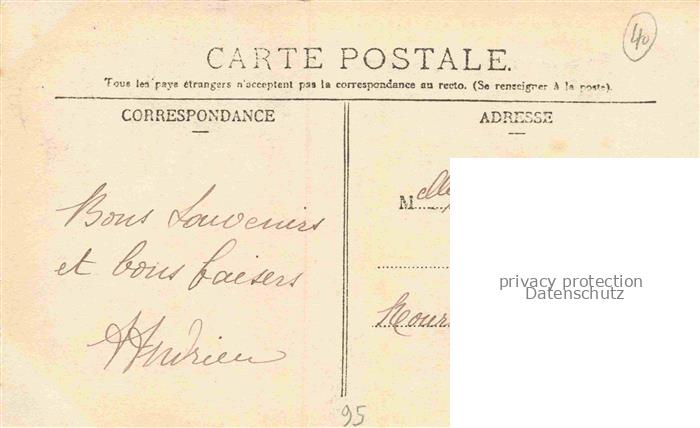 40
CARTE POSTALE.
Tous les pays étrangers n'acceptent pas la correspondance au recto. (Se renseigner à la poste).
CORRESPONDANCE
ADRESSE
Bons Souvenirs
et bons baisers
M elle
privacy protection
Datenschutz
95